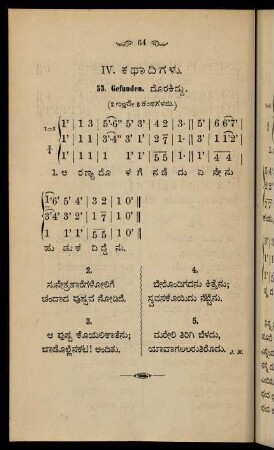 64
IV. ಕಥಾದಿಗಳು.
53. Gefunden. ದೊರಕಿದ್ದು.
1' | 1 3 | 5'·6" | 5' 3' | 4 2 | 3· || 5' | 6 6'7' |
1' | 1 1 | 3'·4" | 3' 1' | 2 7 | 1· || 3' | 1 1'2' |
1' | 1 1 | 1' | 1' 1' | 5 5 | 1· || 1' | 4 4 |
1. ಅ ರಣ್ಯ ದೊ ಳಗೆ ನಡೆದು ಏ ನೇನು
1'6' | 5' 4' | 3' 2' | 1 0' ||
3'4' | 3' 2' | 1 7 | 1 0' ||
1 | 1 1' | 5 5 | 1 0' ||
ಹು ಡುಕ ದಿದ್ದೆ ನು.
2.
ಸುನೇತ್ರತಾರೆಗಳೋಲಿಗೆ
ಚಂದಾದ ಪುಷ್ಪವ ನೋಡಿದೆ.
3.
ಆ ಪುಷ್ಪ ಕೊಯಲಿಕಾಕೆನು;
ಬಾಡೊಲ್ಲೆನಕಟ! ಅಂದಿತು.
4.
ಬೇರೊಂದಿಗದನು ಕಿತ್ತೆನು;
ಸ್ವವನಕೊಯಿದು ನೆಟ್ಟೆನು.
5.
ಮರಳಿ ತಿರಿಗಿ ಬೆಳದು,
ಯಾವಾಗಲಲರುತಿರೊದು. J. M.